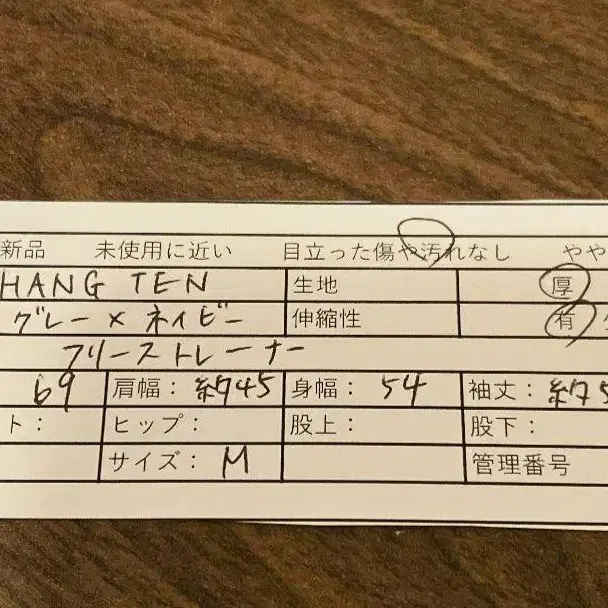 新品 未使用に近い 目立った傷や汚れなし やや
HANG TEN 生地 厚
グレー×ネイビー 伸縮性 有
フリーストレーナー
69 肩幅: 約45 身幅: 54 袖丈: 約5
ト: ヒップ: 股上: 股下:
サイズ: M 管理番号